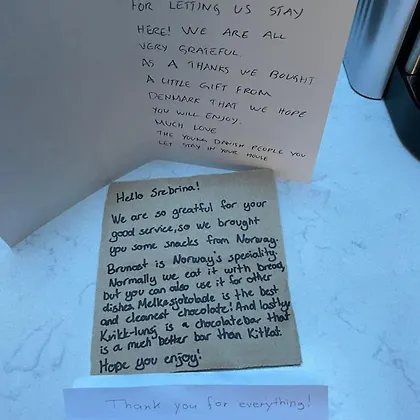 FOR LETTING US STAY
HERE! WE ARE ALL
VERY GRATEFUL.
AS A THANKS WE BOUGHT
A LITTLE GIFT FROM
DENMARK THAT WE HOPE
YOU WILL ENJOY.
MUCH LOVE
THE YOUNG DANISH PEOPLE YOU
LET STAY IN YOUR HOUSE
Hello Srebrina!
We are so greatful for your
good service, so we brought
you some snacks from Norway.
Brunost is Norway's speciality.
Normally we eat it with bread,
but you can also use it for other
dishes. Melkesjokolade is the best
and cleanest chocolate! And lastly
Kvikk-lunsj is a chocolate bar that
is a much better bar than KitKat.
Hope you enjoy!
Thank you for everything!